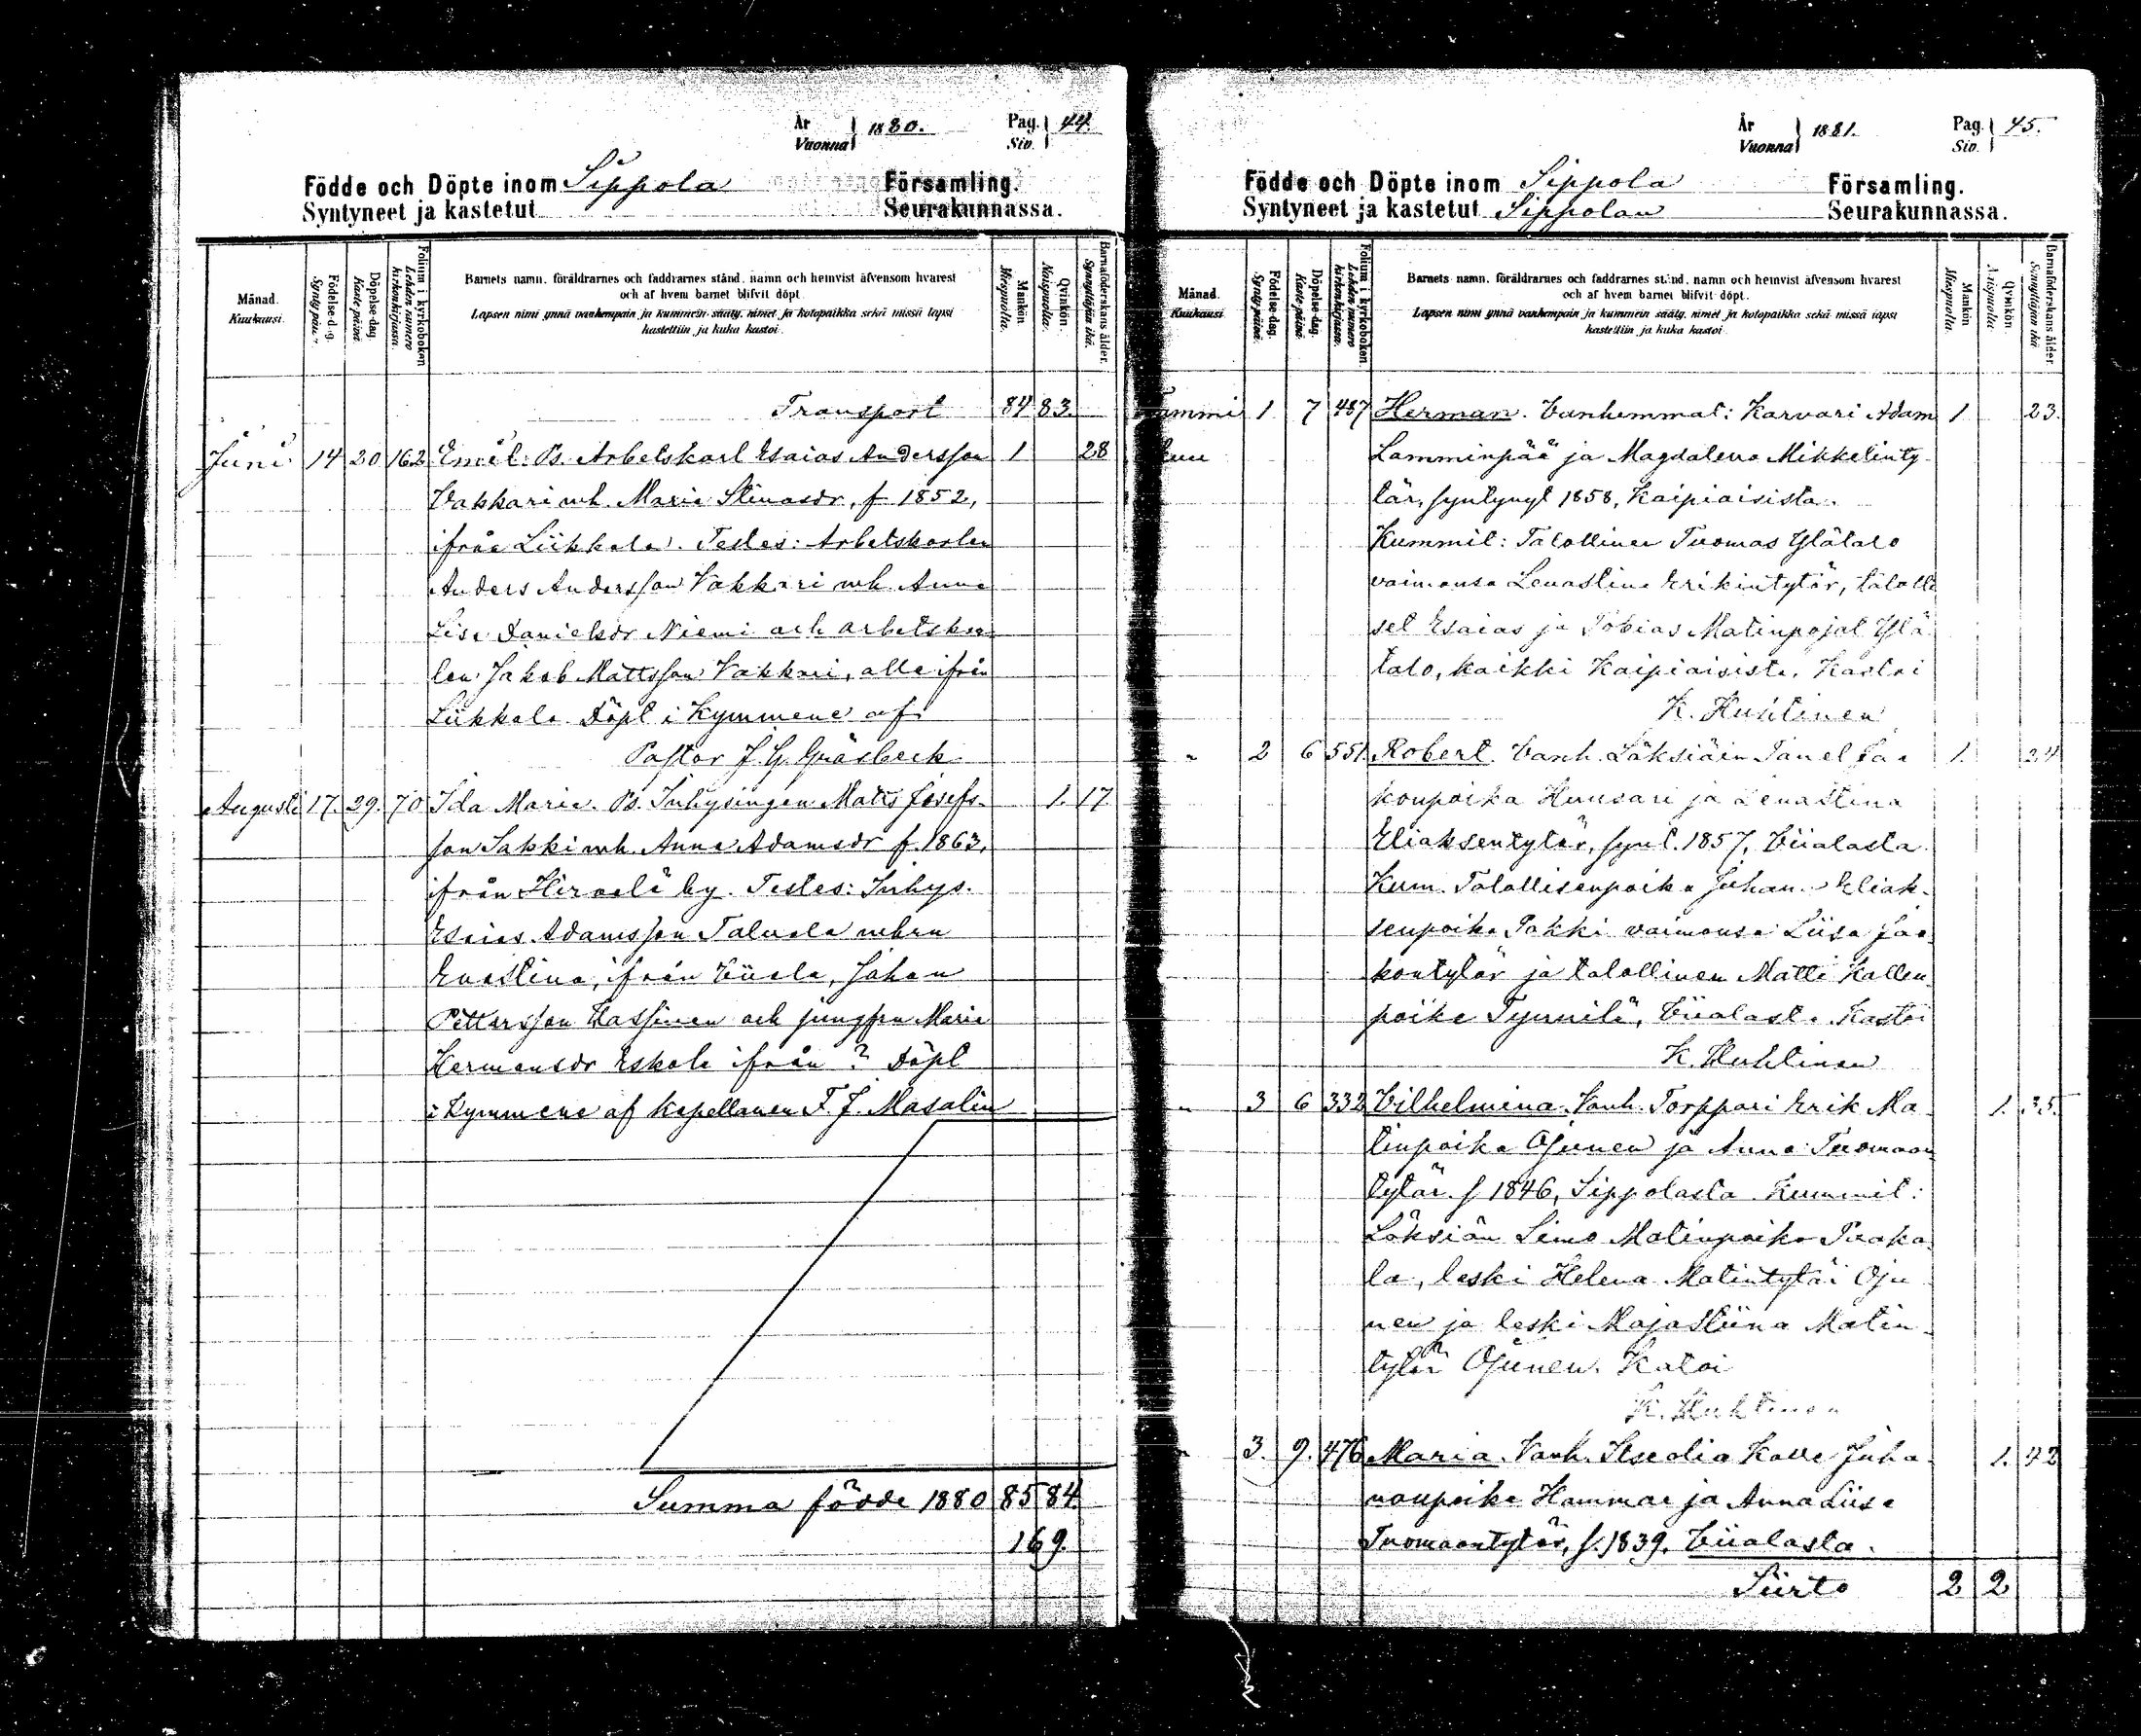 År Vuonna 1880. Pag. Siv. 44.
Födde och Döpte inom Sippola Församling.
Syntyneet ja kastetut Seurakunnassa.
Månad. Kuukausi.
Födelse-dag. Syntypäivä.
Döpelse-dag. Kaste päivä.
Folium i kyrkoboken. Lehden numero kirkonkirjassa.
Barnets namn, föräldrarnes och faddrarnes stånd, namn och hemvist äfvensom hvarest
och af hvem barnet blifvit döpt.
Lapsen nimi ynnä vanhempain ja kummein sääty, nimet ja kotopaikka sekä missä lapsi
kastettiin ja kuka kastoi.
Mankön. Miespuolia.
Qvinkön. Naispuolia.
Barnaföderskans ålder. Synnyttäjän ikä.
Transport 84 83
Juni 14 20 162 Emil. Ps. Arbetskarl Esaias Andersson 1 28
Vakkari mh. Maria Stinasdr, f 1852,
ifrån Liikkala. Testes: Arbetskarlen
Anders Andersson Vakkari mh. Anna
Lisa Danielsdr Niemi och arbetskar
len Jakob Mattsson Vakkari, alla ifrån
Liikkala. Döpt i Kymmene af
Pastor J. G. Gräsbeck
Augusti 17. 29. 70 Ida Maria. Ps. Inhysingen Matts Josefs- 1. 17
son Sakki mh. Anna Adamsdr f. 1863,
ifrån Hirvelä by. Testes: Inhys.
Esaias Adamsson Taluala mhru
Evastina, ifrån Viiala, Johan
Pettersson Hassinen och jungfru Maria
Hermansdr Eskola ifrån ? Döpt
i Kymmene af kapellanen F. J. Masalin
Summa födde 1880 85 84
169.
År Vuonna 1881. Pag. Siv. 45.
Födde och Döpte inom Sippola Församling.
Syntyneet ja kastetut Sippolan Seurakunnassa.
Månad. Kuukausi.
Födelse-dag. Syntypäivä.
Döpelse-dag. Kaste päivä.
Folium i kyrkoboken. Lehden numero kirkonkirjassa.
Barnets namn, föräldrarnes och faddrarnes stånd, namn och hemvist äfvensom hvarest
och af hvem barnet blifvit döpt.
Lapsen nimi ynnä vanhempain ja kummein sääty, nimet ja kotopaikka sekä missä lapsi
kastettiin ja kuka kastoi.
Mankön. Miespuolia.
Qvinkön. Naispuolia.
Barnaföderskans ålder. Synnyttäjän ikä
Tammi 1 7 487 Herman. Vanhemmat: Karvari Adam 1 23.
kuu Lamminpää ja Magdalena Mikkelinty-
tär, syntynyt 1858, Kaipiaisista.
Kummit: Talollinen Tuomas Ylätalo
vaimonsa Lenastina Erikintytär, talolli
set Esaias ja Tobias Matinpojat Ylä
talo, kaikki Kaipiaisista. Kastoi
K. Huhtinen
" 2 6 551. Robert. Vanh. Läksiäin Tanel Jaa 1. 24
konpoika Huusari ja Lenastina
Eliaksentytär, synt. 1857, Viialasta
Kum. Talollisenpoika Juhan Eliak-
senpoika Pakki vaimonsa Liisa Jaa
kontytär ja talollinen Matti Kallen
poika Tynnilä, Viialasta. Kastoi
K. Huhtinen
" 3 6 332 Vilhelmina. Vanh. Torppari Erik Ma- 1. 35.
tinpoika Ojunen ja Anna Tuomaan
tytär. s 1846, Sippolasta. Kummit:
Läksiän Simo Matinpoika Paaka
la, leski Helena Matintytär Oju
nen ja leski Majastiina Matin-
tytär Ojunen. Katoi
K. Huhtinen
" 3. 9. 476 Maria. Vanh. Itseoliа Kalle Juha 1. 42
nanpoika Hammar ja Anna Liisa
Tuomaantytär, s. 1839, Viialasta.
Siirto 2 2